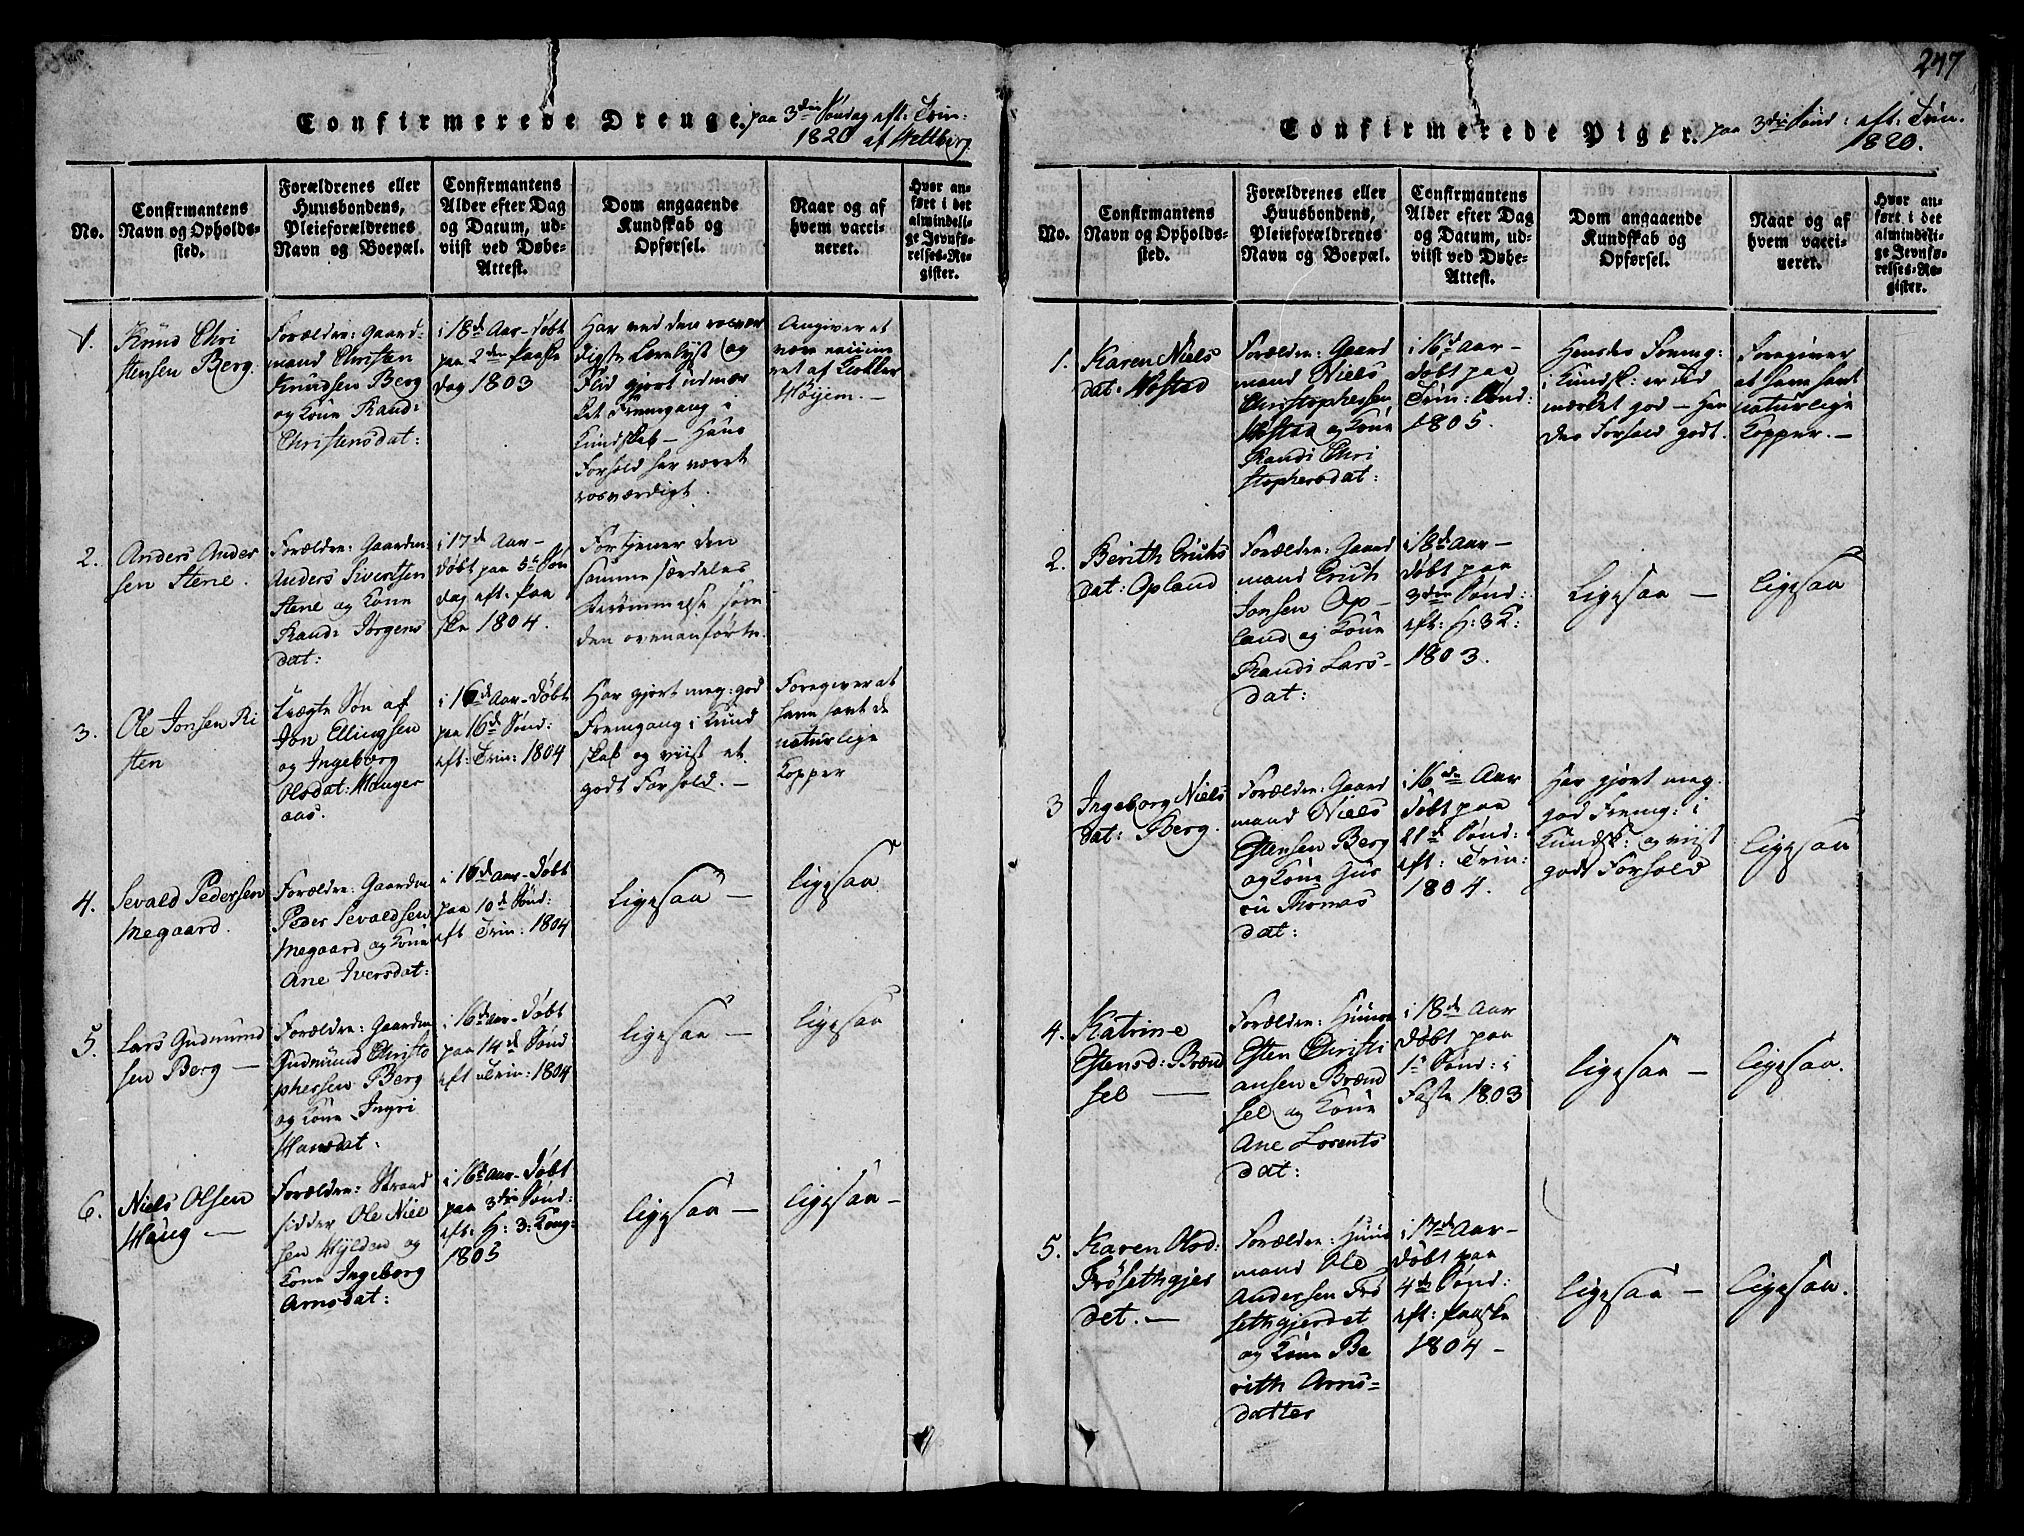 247
Confirmerede Drenge. paa 3die Søndag eft: Trin:
1820 af Hetlberg.
No.
Confirmantens
Navn og Opholds-
sted.
Forældrenes eller
Huusbondens,
Pleieforældrenes
Navn og Boepæl.
Confirmantens
Alder efter Dag
og Datum, ud-
viist ved Døbe-
Attest.
Dom angaaende
Kundskab og
Opførsel.
Naar og af
hvem vacci-
neret.
Hvor an-
ført i det
almindeli-
ge Jevnfø-
relses-Re-
gister.
1.
Knud Chri
stensen Berg.
Forældre: Gaard-
mand Christen
Knudsen Berg
og Kone Randi
Christensdat:
i 18de Aar - døbt
paa 2den Paaske
dag 1803
Har ved den rosvær
digste Lærelyst og
Flid gjort udmær
ket Fremgang i
Kundskab - Hans
Forhold har været
rosværdigt.
Angiver at
være vaccine
ret af Klokker
Høyem. -
2.
Anders Ander
sen Stene.
Forældre: Gaardm:
Anders Sivertsen
Stene og Kone
Randi Jørgens
dat:
i 17de Aar -
døbt paa 5te Søn
dag eft: Paa
ske 1804.
Fortjener den
samme særdeles
Berømmelse som
den ovenanførte.
3.
Ole Jonsen Ri
sten
Uægte Søn af
Jon Ellingsen
og Ingeborg
Olsdat: Hanger
aas.
i 16de Aar - Døbt
paa 16de Sønd:
eft: Trin: 1804
Har gjort meg: god
Fremgang i Kund
skab og viist et
godt Forhold. -
Foregiver at
have havt de
naturlige
Kopper
4.
Sevald Pedersen
Megaard.
Forældre: Gaardm:
Peder Sevaldsen
Megaard og Kone
Ane Iversdat:
i 16de Aar - Døbt
paa 10de Sønd:
eft Trin: 1804
Ligesaa -
ligesaa
5.
Lars Gudmund
sen Berg -
Forældre: Gaardm
Gudmund Christo
phersen Berg
og Kone Ingri
Hansdat:
i 16de Aar - Døbt
paa 14de Sønd
eft Trin: 1804
ligesaa -
ligesaa
6.
Niels Olsen
Haug -
Forældre: Strand
sidder Ole Niel
sen Hylden og
Kone Ingeborg
Arnsdat:
i 16de Aar - Døbt
paa 3die Sønd:
eft: H: 3: Kong:
1805
ligesaa -
ligesaa -
Confirmerede Piger. paa 3die Sønd: eft: Trin.
1820.
No.
Confirmantens
Navn og Opholds-
sted.
Forældrenes eller
Huusbondens,
Pleieforældrenes
Navn og Boepæl.
Confirmantens
Alder efter Dag
og Datum, ud-
viist ved Døbe-
Attest.
Dom angaaende
Kundskab og
Opførsel.
Naar og af
hvem vacci-
neret.
Hvor an-
ført i det
almindeli-
ge Jevnfø-
relses-Re-
gister.
1.
Karen Niels
dat: Mostad
Forældre: Gaard
mand Niels
Christophersen
Mostad og Kone
Randi Chri
stophersdat:
i 16de Aar -
døbt paa
Trin: Sønd:
1805.
Hendes Fremg:
i Kundsk: er ud
mærket god - Hen
des Forhold godt.
Foregiver
at have havt
naturlige
Kopper. -
2.
Berith Erichs
dat: Opland
Forældre: Gaard
mand Erich
Jonsen Op-
land og Kone
Randi Lars-
dat:
i 18de Aar -
døbt paa
3die Sønd:
eft: H: 3 K:
1803.
Ligesaa -
ligesaa
3
Ingeborg Niels
dat: Berg.
Forældre: Gaard
mand Niels
Estensen Berg
og Kone Gu
ru Thomas
dat:
i 16de Aar
døbt paa
21de Sønd:
eft: Trin:
1804.
Har gjort meg.
god Fremg: i
Kundsk: og viist
godt Forhold
ligesaa
4.
Katrine
Estensd: Brænd
sel -
Forældre: Huusm
Esten Christi
ansen Brænd
sel og Kone
Ane Lorents
dat:
i 18de Aar
døbt paa
1ste Sønd: i
Faste 1803
ligesaa -
ligesaa.
5.
Karen Olsd:
Frøsethgjer
det. -
Forældre: Huus
mand Ole
Andersen Frø
sethgjerdet
og Kone Be
rith Arns-
datter
i 17de Aar -
døbt paa
4de Sønd:
eft: Paaske
1804 -
ligesaa -
ligesaa.